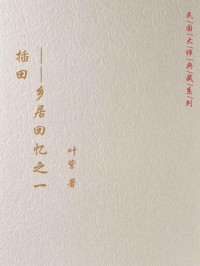 民|国|大|师|典|藏|系|列
插田
——乡居回忆之一
叶紫 著